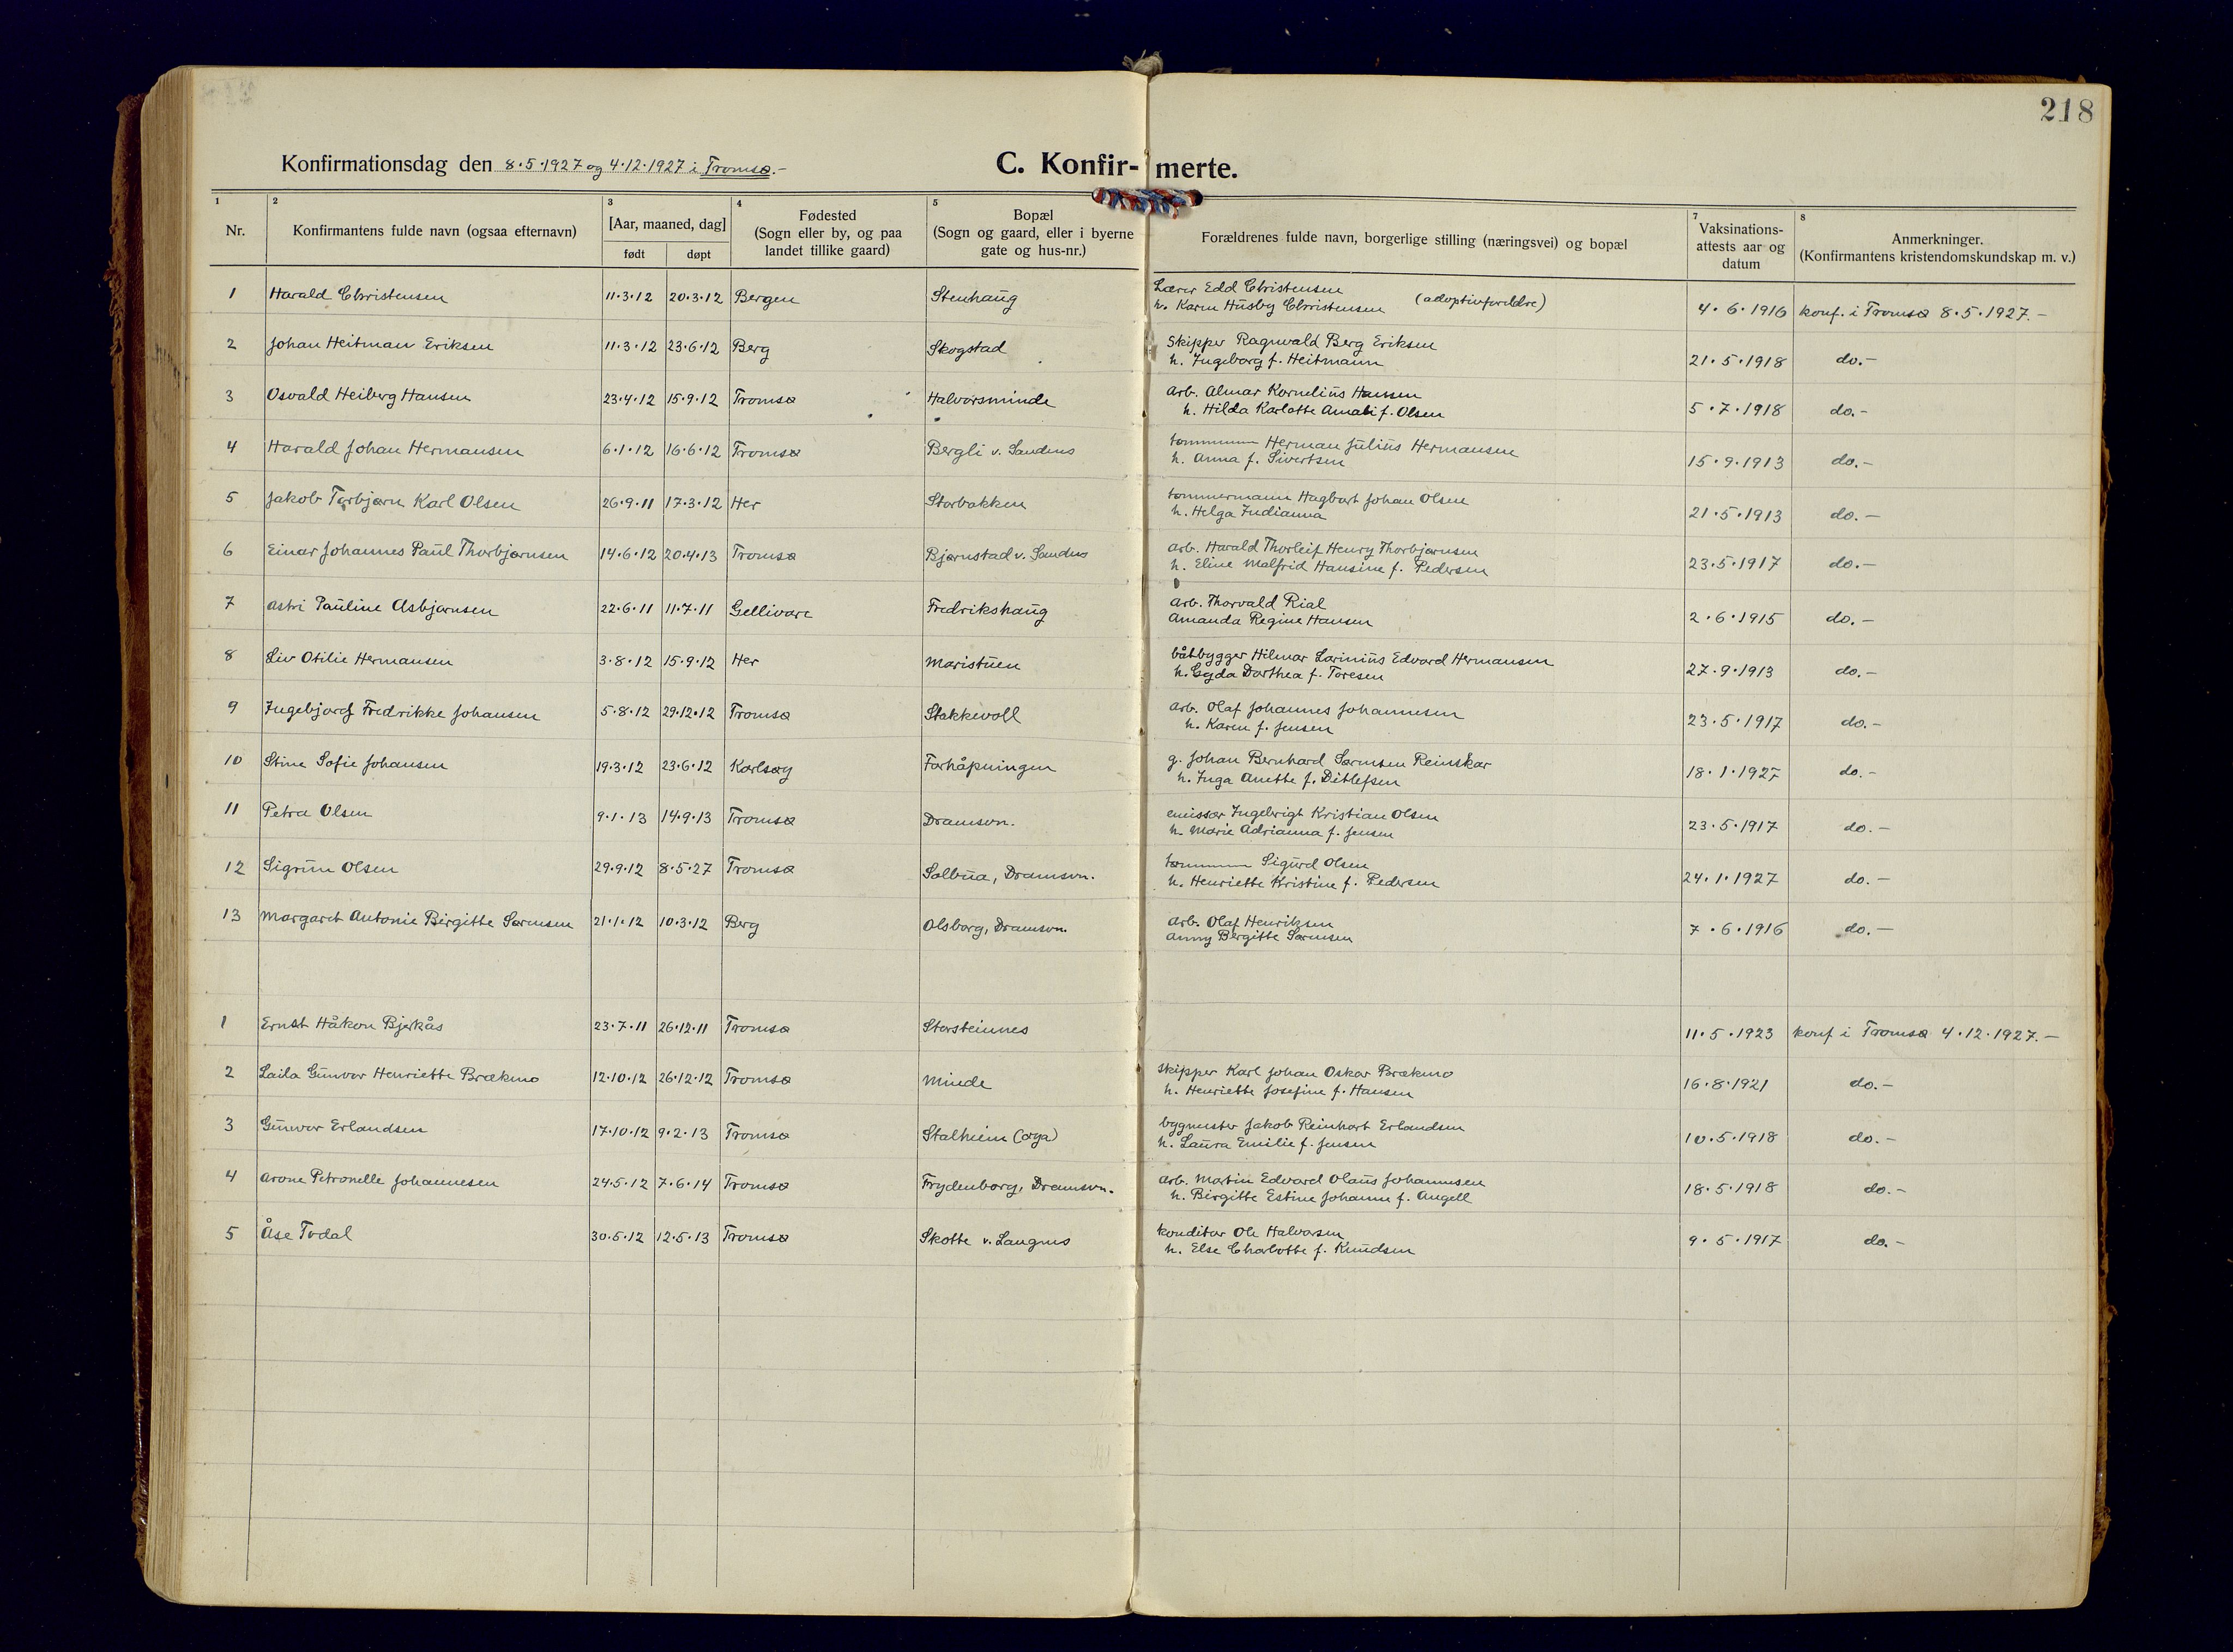 218
Konfirmationsdag den 8·5·1927 og 4·12·1927 i Tromsø.-
C. Konfirmerte.
1 2 3 4 5 7 8
Nr. Konfirmantens fulde navn (ogsaa efternavn) [Aar, maaned, dag] født døpt Fødested (Sogn eller by, og paa landet tillike gaard) Bopæl (Sogn og gaard, eller i byerne gate og hus-nr.) Forældrenes fulde navn, borgerlige stilling (næringsvei) og bopæl Vaksinations-attests aar og datum Anmerkninger. (Konfirmantens kristendomskundskap m. v.)
1 Harald Christensen 11·3·12 20·3·12 Bergen Stenhaug Lærer Edd Christensen
h. Karen Husby Christensen (adoptivforeldre) 4·6·1916 konf. i Tromsø 8·5·1927.-
2 Johan Heitman Eriksen 11·3·12 23·6·12 Berg Skogstad Skipper Ragnvald Berg Eriksen
h. Ingeborg f. Heitmann 21·5·1918 do.-
3 Osvald Heiberg Hansen 23·4·12 15·9·12 Tromsø Halvorsminde Arb. Almar Kornelius Hansen
h. Hilda Karlotte Amali f. Olsen 5·7·1918 do.-
4 Harald Johan Hermansen 6·1·12 16·6·12 Tromsø Bergli v. Sandnes Herman Julius Hermansen
h. Anna f. Sivertsen 15·9·1913 do.-
5 Jakob Torbjørn Karl Olsen 26·9·11 17·3·12 Her Storbakken tømmermann Hagbart Johan Olsen
h. Helga Indianna 21·5·1913 do.-
6 Einar Johannes Paul Thorbjørnsen 14·6·12 20·4·13 Tromsø Bjørnstad v. Sandnes arb. Harald Thorleif Henry Thorbjørnsen
h. Eline Malfrid Hansine f. Pedersen 23·5·1917 do.-
7 Astri Pauline Asbjørnsen 22·6·11 11·7·11 Gellivare Fredrikshaug Arb. Thorvald Rial
Amanda Regine Hansen 2·6·1915 do.-
8 Liv Otilie Hermansen 3·8·12 15·9·12 Her Maristuen båtbygger Hilmar Larinius Edvard Hermansen
h. Dorthea f. Toresen 27·9·1913 do.-
9 Ingebjørg Fredrikke Johansen 5·8·12 29·12·12 Tromsø Stakkevoll Arb. Olaf Johannes Johannesen
h. Karen f. Jensen 23·5·1917 do.-
10 Stine Sofie Johansen 19·3·12 23·6·12 Karlsøy Forhåpningen g. Johan Bernhard Sørensen Reinskar
h. Inga Anette f. Ditlefsen 18·1·1927 do.-
11 Petra Olsen 9·1·13 14·9·13 Tromsø Dramsvn. emissær Ingebrigt Kristian Olsen
h. Marie Adrianna f. Jensen 23·5·1917 do.-
12 Sigrun Olsen 29·9·12 8·5·27 Tromsø Solbua, Dramsvn. Sigurd Olsen
h. Henriette Kristine f. Pedersen 24·1·1927 do.-
13 Margaret Antonie Birgitte Sørensen 21·1·12 10·3·12 Berg Olsborg, Dramsvn. Arb. Olaf Henriksen
Anny Bergitte Sørensen 7·6·1916 do.-
1 Ernst Håkon Bjerkås 23·7·11 26·12·11 Tromsø Storsteinnes 11·5·1923 konf i Tromsø 4·12·1927.-
2 Laila Gunvor Henriette Brækmo 12·10·12 26·12·12 Tromsø Minde Skipper Karl Johan Oskar Brækmo
h. Henriette Josefine f. Hansen 16·8·1921 do.-
3 Gunvor Erlandsen 17·10·12 9·2·13 Tromsø Stalheim (øya) bygmester Jakob Reinhart Erlandsen
h. Laura Emilie f. Jensen 10·5·1918 do.-
4 Arone Petronelle Johannesen 24·5·12 7·6·14 Tromsø Frydenborg, Dramsvn. arb. Martin Edvard Olaus Johannesen
h. Birgitte Estine Johanne f. Angell 18·5·1918 do.-
5 Åse Tvdal 30·5·12 12·5·13 Tromsø Skotte v. Langnes konditor Ole Halvorsen
h. Else Charlotte f. Knudsen 9·5·1917 do.-